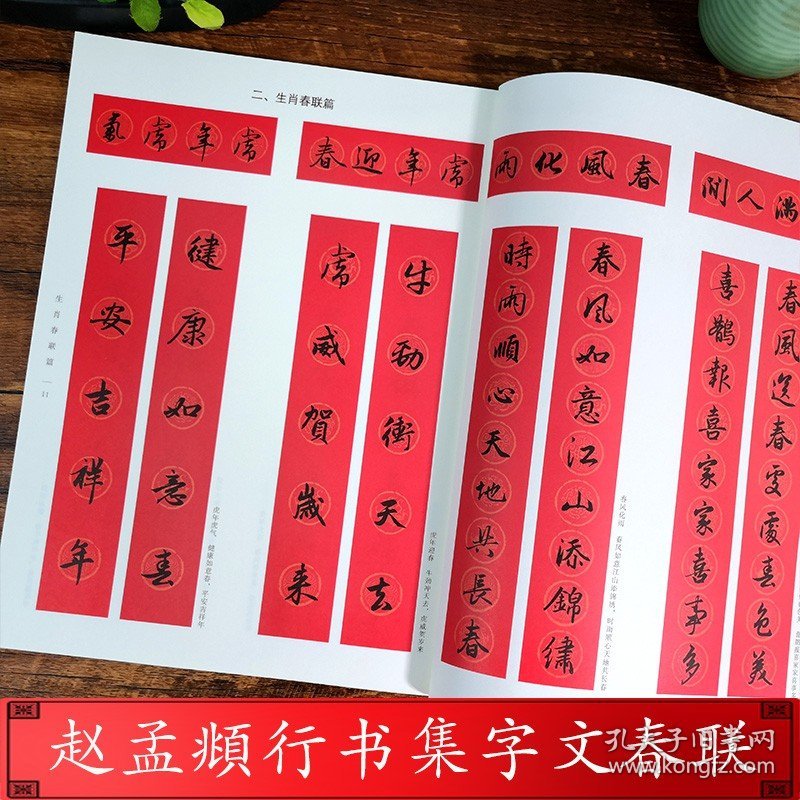 二、生肖春联篇
虎年虎氣
健康如意春
平安吉祥年
虎年虎气 健康如意春，平安吉祥年
虎年迎春
牛劲衝天去
虎威賀歲来
虎年迎春 牛劲冲天去，虎威贺岁来
生肖春联篇 — 11
春風化雨
春风如意江山添錦繡
時雨順心天地共長春
春风化雨 春风如意江山添锦绣，时雨顺心天地共长春
满人间
春風送春處處春色美
喜鵲報喜家家喜事多
赵孟頫行书集字文春联
孔夫子旧书网
www.kongfz.com